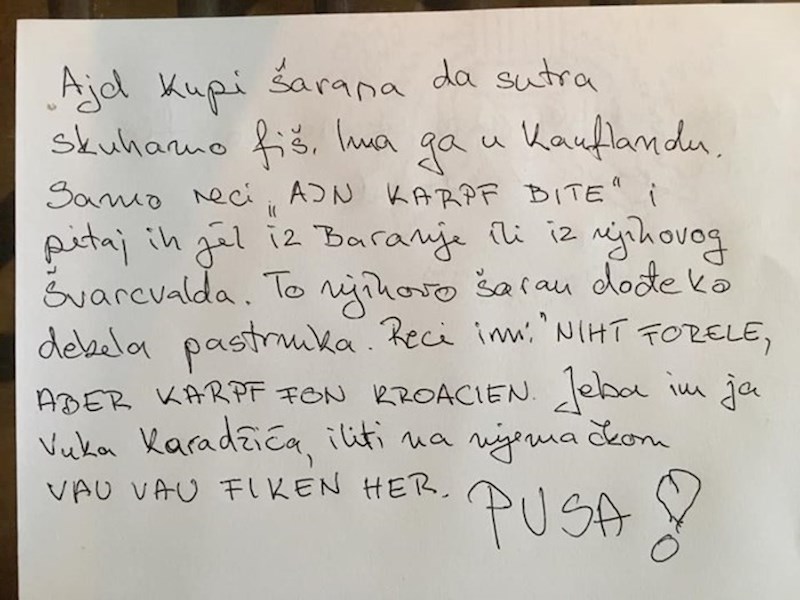 Ajd kupi šarana da sutra
skuhamo fiš. Ima ga u Kauflandu.
Samo reci „AJN KARPF BITE" i
pitaj ih jel iz Baranje ili iz njihovog
Švarcvalda. To njihovo šaran dođe ko
debela pastrmka. Reci im: "NIHT FORELE,
ABER KARPF FON KROACIEN. Jeba im ja
Vuka Karadžića, iliti na njemačkom
VAU VAU FIKEN HER.
PUSA!